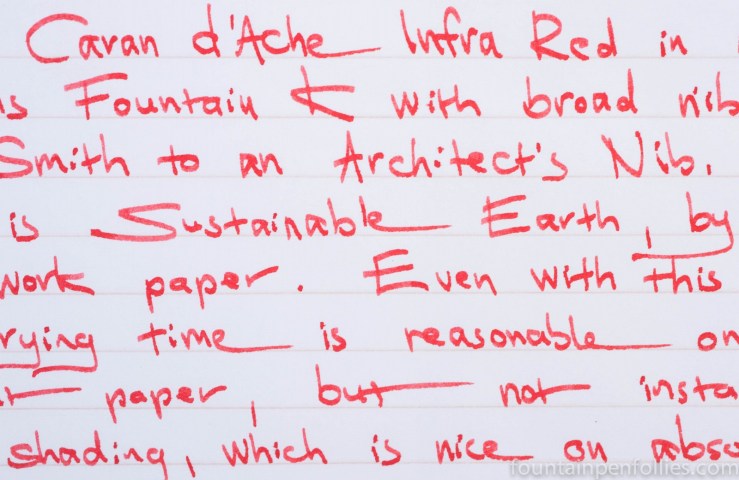 Caran d'Ache Infra Red in
s Fountain K with broad nib
Smith to an Architect's Nib.
is Sustainable Earth, by
work paper. Even with this
rying time is reasonable on
paper, but not insta
shading, which is nice on abso
fountainpenfollies.com